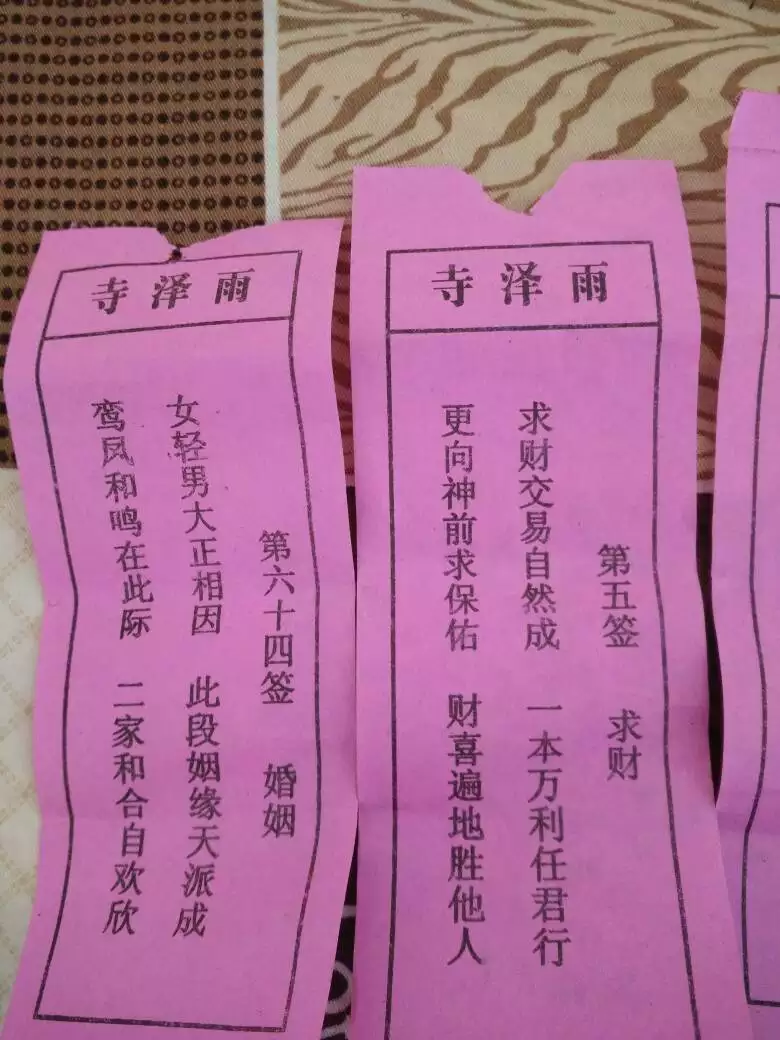 雨泽寺
第六十四签 婚姻
女轻男大正相因 此段姻缘天派成
鸾凤和鸣在此际 二家和合自欢欣
雨泽寺
第五签 求财
求财交易自然成 一本万利任君行
更向神前求保佑 财喜遍地胜他人